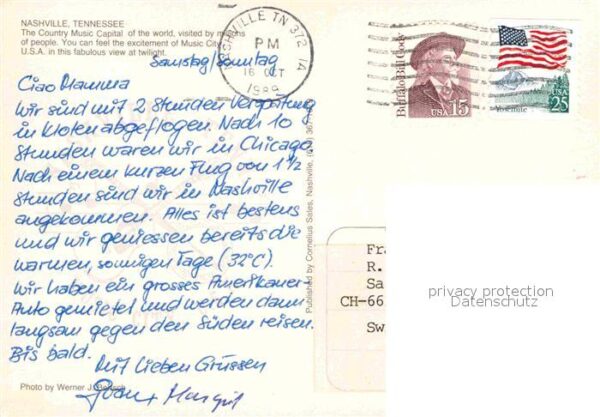 NASHVILLE, TENNESSEE
The Country Music Capital of the world, visited by
of people. You can feel the excitement of Music City
U.S.A. in this fabulous view at twilight.
Samstag/Sonntag
Ciao Mamma
Wir sind mit 2 Stunden Verspätung
in Kloten abgeflogen. Nach 10
Stunden waren wir in Chicago.
Nach einem kurzen Flug von 1 1/2
Stunden sind wir in Nashville
angekommen. Alles ist bestens
und wir geniessen bereits die
warmen, sonnigen Tage (32°C).
Wir haben ein grosses Amerikaner-
Auto gemietet und werden dann
langsam gegen den Süden reisen.
Bis bald.
Mit lieben Grüssen
Margrit
Photo by Werner J.
Published by Cornelius Sales, Nashville,
NASHVILLE TN 372
PM
16 OCT
1989
Buffalo Bill Cody
USA 15
USA
25
Yosemite
Fr
R.
Sa
CH-66
Sw
privacy protection
Datenschutz